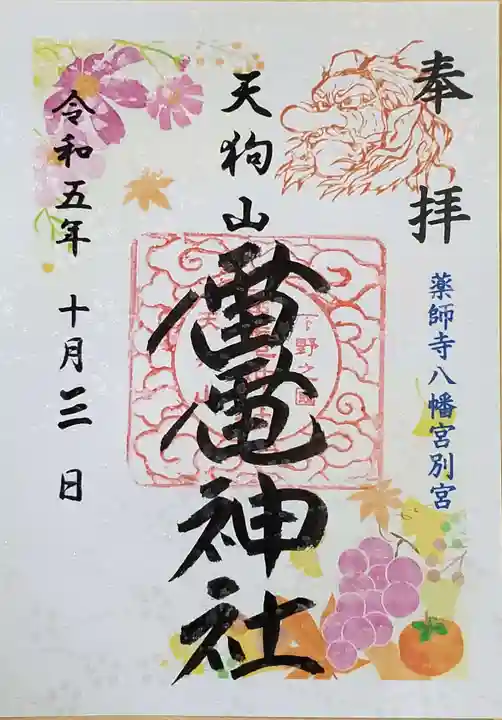 奉拝
薬師寺八幡宮別宮
下野之國
天狗山
雷電神社
令和五年 十月三日